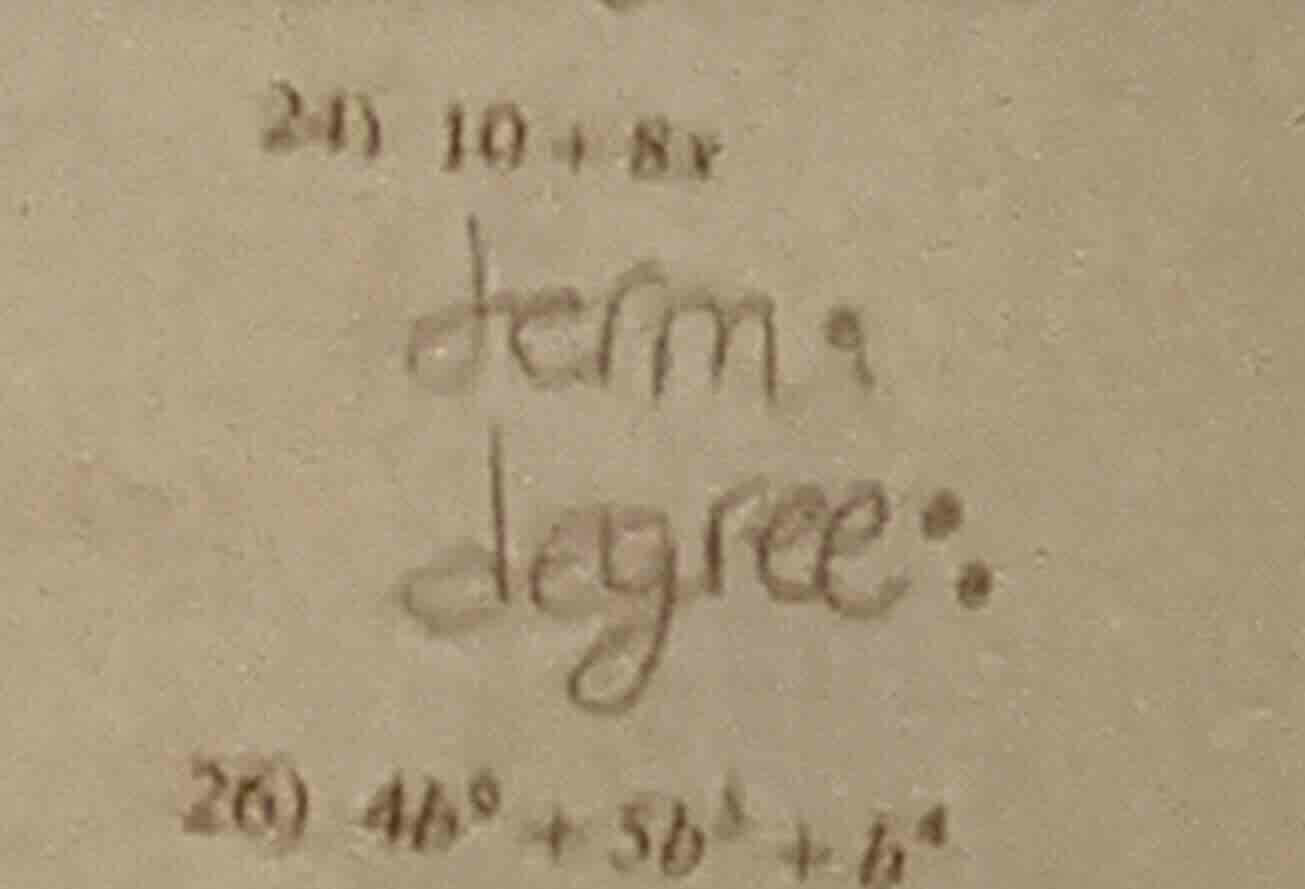 24) 10 + 8x
term:
degree:
26) 4b⁶ + 5b³ + b⁴